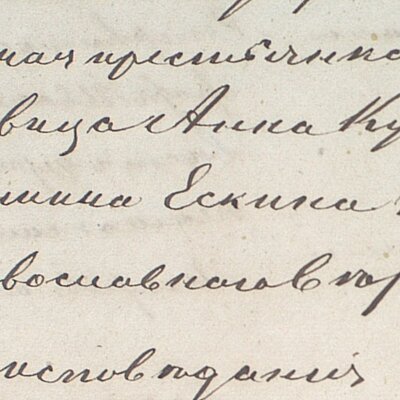 ная крестьянка
вица Анна Ку
мина Ескина
вославного вѣр
исповѣданія